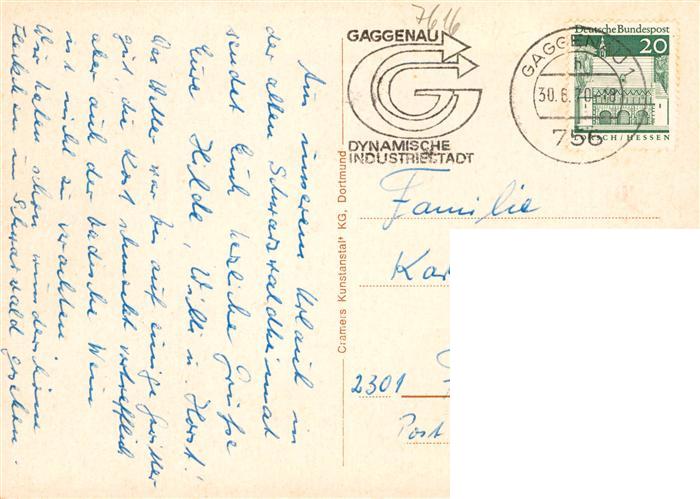 7616
GAGGENAU
DYNAMISCHE
INDUSTRIESTADT
GAGGENAU 1
h
30.6.70-18
756
Deutsche Bundespost
20
LORSCH/HESSEN
Aus unserem Urlaub in
der alten Schwarzwaldheimat
sendet Euch herzliche Grüße
Eure Hilde, Willi u. Horst!
Das Wetter war bis auf einige Gewitter
gut, die Kost schmeckt vortrefflich
aber auch der badische Wein
ist nicht zu verachten
Wir haben schon wunderschöne
Fleckchen im Schwarzwald gesehen.
Cramers Kunstanstalt KG, Dortmund
Familie
Kar
2301
Post